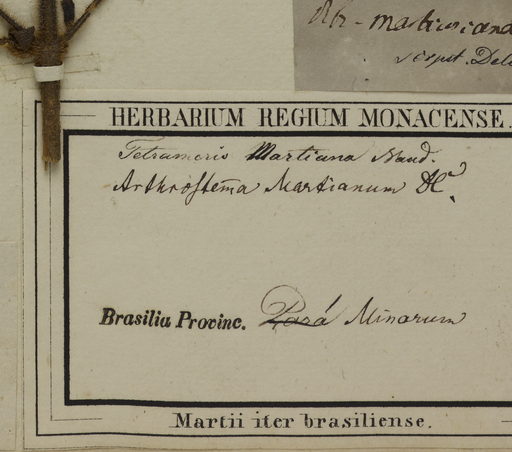 martiana
script. Del
HERBARIUM REGIUM MONACENSE.
Tetrameris Martiana Naud.
Arthrostēma Martianum DC.
Brasilia Provinc. Pará Minarum
Martii iter brasiliense.